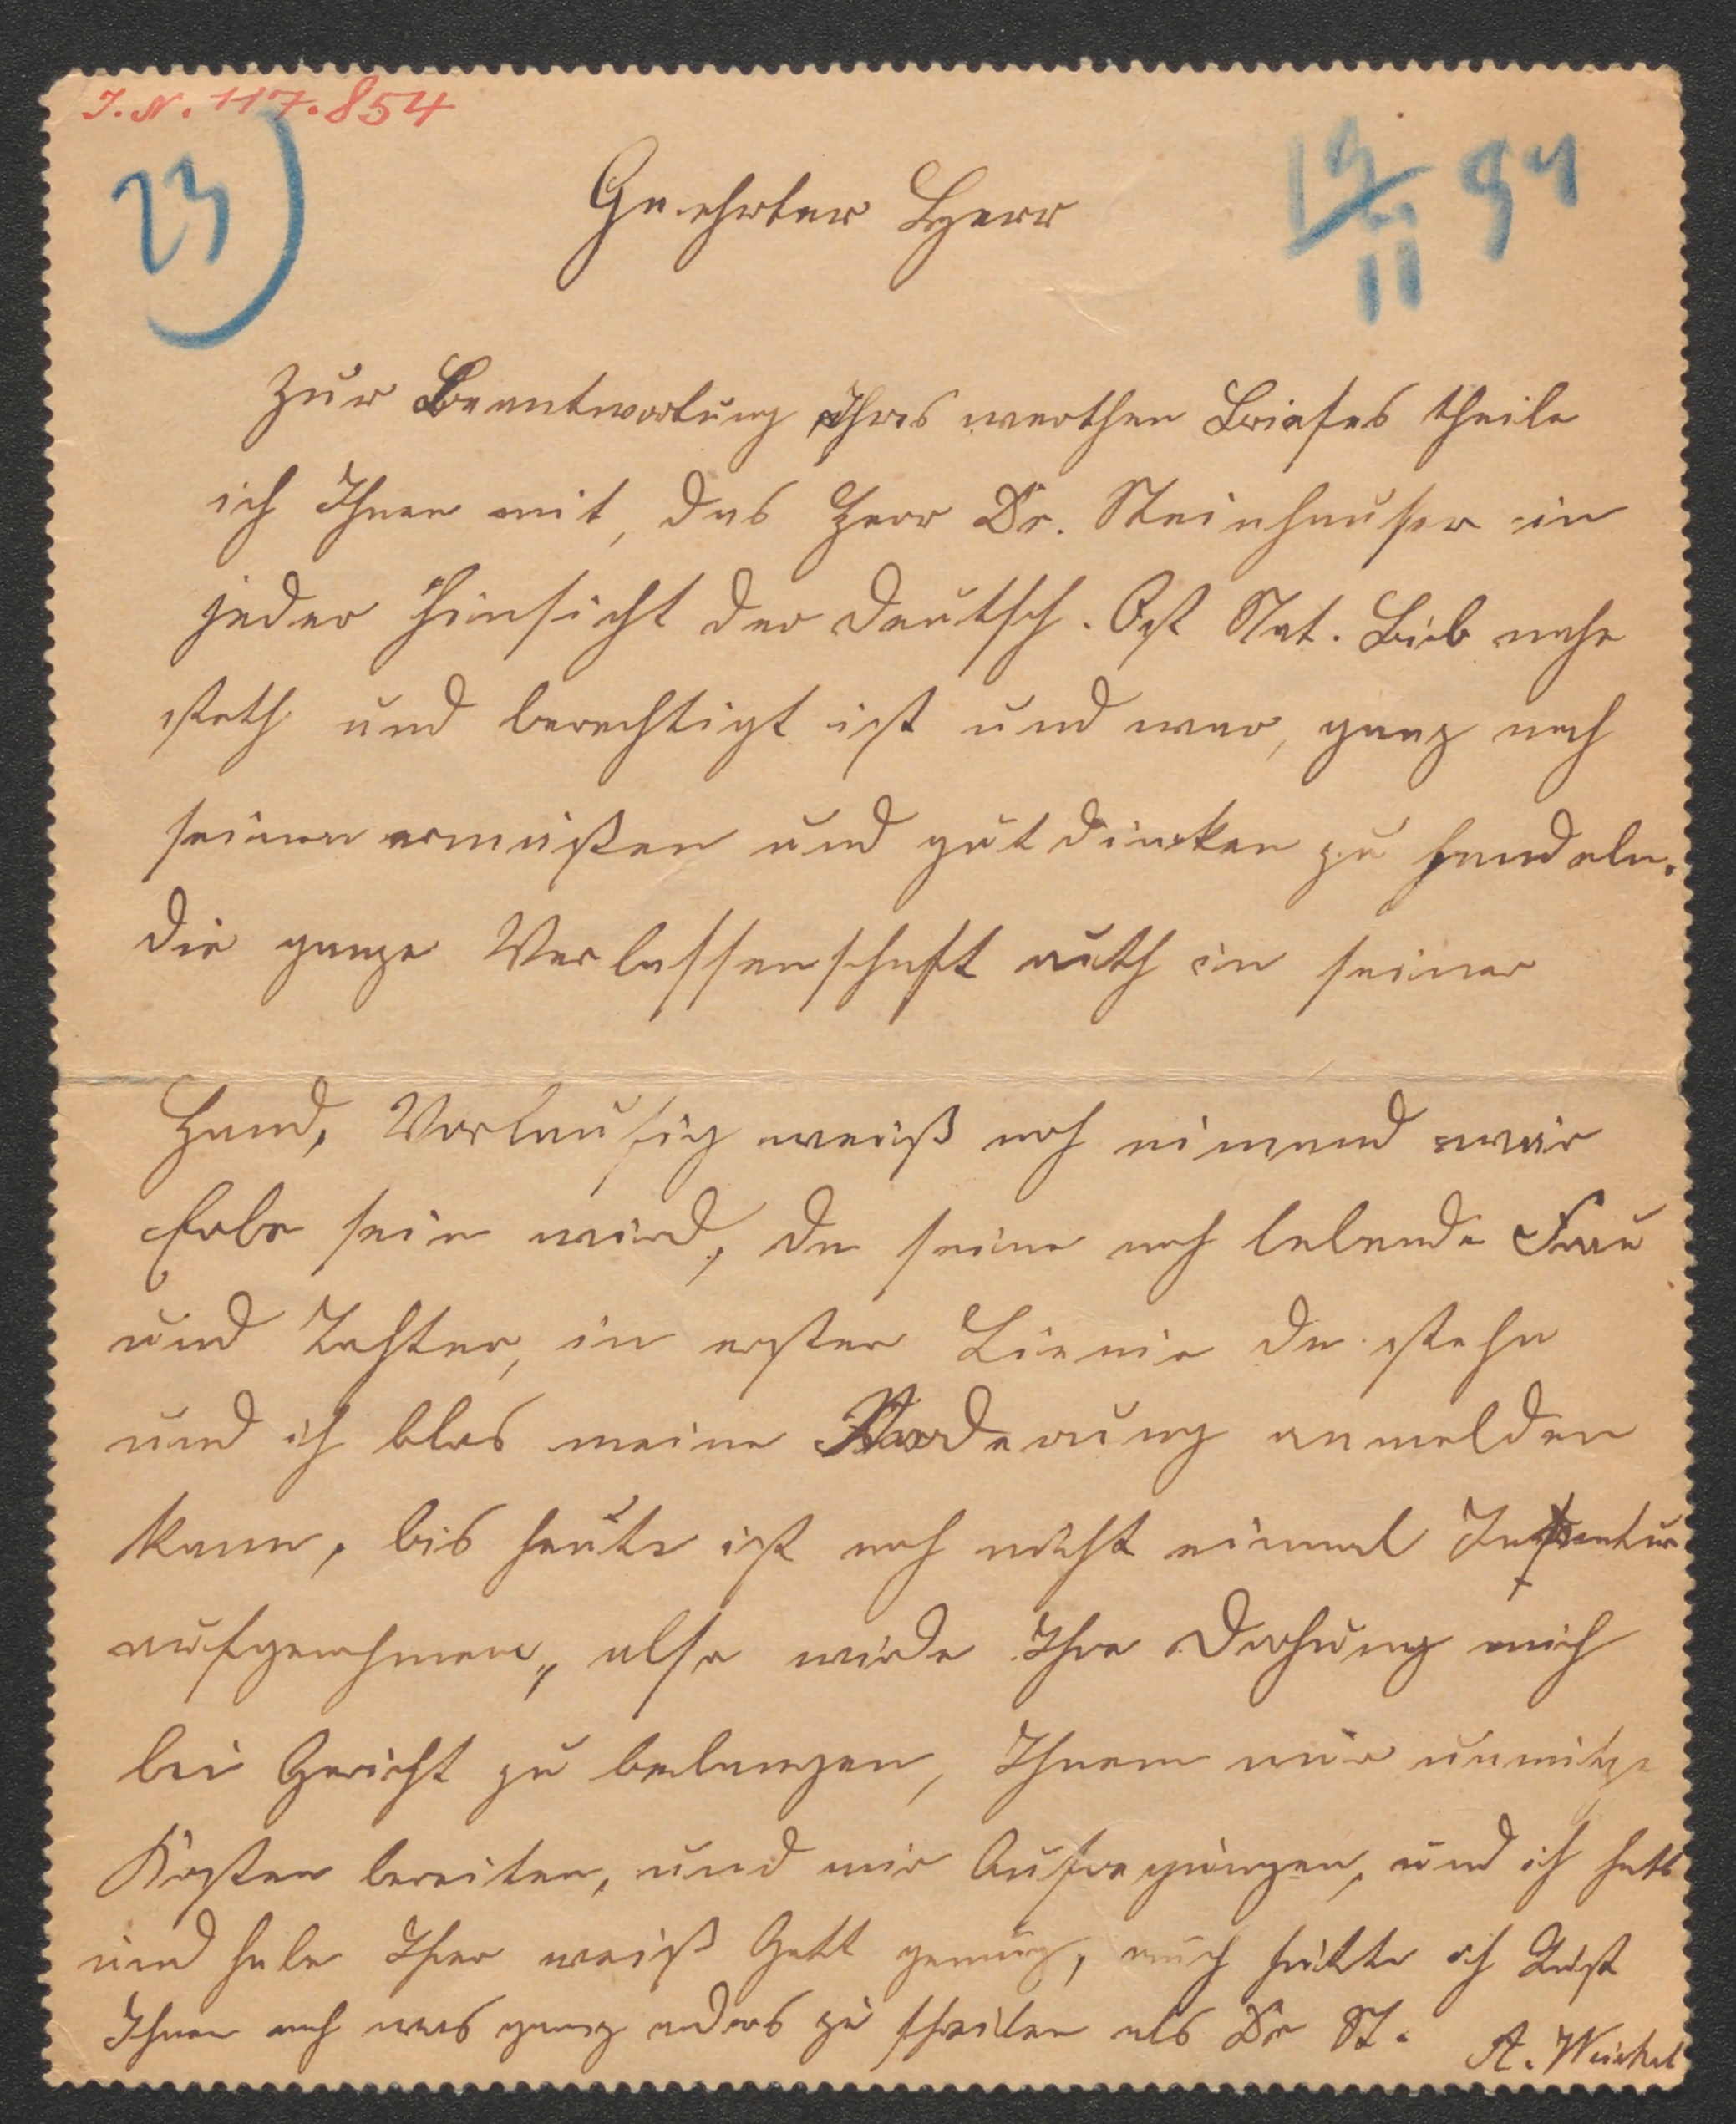 I.N. 117.854
23)
19/11 94
Geehrter Herr
Zur Beantwortung Ihres werthen Briefes theile
ich Ihnen mit, das Herr Dr. Steinhauser in
jeder Hinsicht der deutsch. Öst Nat. Bib nahe
steth und berechtigt ist und war, ganz nach
seinen ermeißen und gutdinken zu handeln.
die ganze Verlassenschaft ruth in seiner
Hand, Vorlaufig weiß noch niemand wär
Erbe sein wird, da seine noch lebende Frau
und Tochter, in erster Lienie da stehn
und ich blos meine Forderung anmelden
kann, bis heute ist noch nicht einmal Inventur
aufgenohmen, also wirde Ihre Drohung mich
bei Gericht zu belangen, Ihnen nur unnitze
Kosten bereiten, und mir Aufregungen, und ich hatt
und habe Ihrer weiß Gott genug, auch hätte ich Lust
Ihnen noch was ganz anders zu schreiben als Dr St.
A. Weichsel